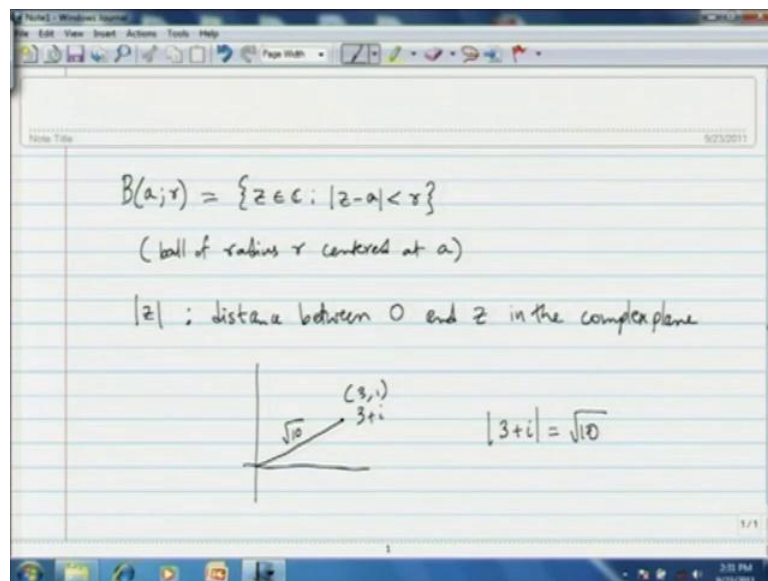 Note1 - Windows Journal
File Edit View Insert Actions Tools Help
Page Width
Note Title
9/23/2011
B(a;r) = {z∈ℂ: |z-a|<r}
(ball of radius r centered at a)
|z| : distance between 0 and z in the complex plane
(3,1)
3+i
√10
|3+i| = √10
1/1
1
2:31 PM
9/23/2011